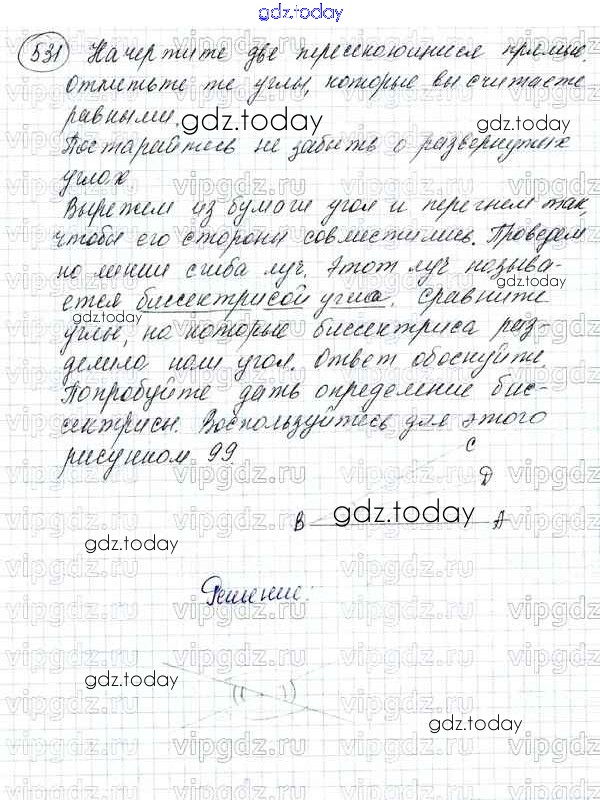 gdz.today
531 Начертите две пересекающиеся прямые.
Отметьте те углы, которые вы считаете
равными.
gdz.today
Постарайтесь не забыть о развернутых
углах
Вырежем из бумаги угол и перегнем так,
чтобы его стороны совместились. Проведем
по линии сгиба луч. Этот луч называ-
ется биссектрисой угла. Сравните
углы, на которые биссектриса раз-
делила наш угол. Ответ обоснуйте.
Попробуйте дать определение бис-
сектрисы. Воспользуйтесь для этого
рисунком 99.
C
D
B A
gdz.today
gdz.today
Решение:
gdz.today
gdz.today